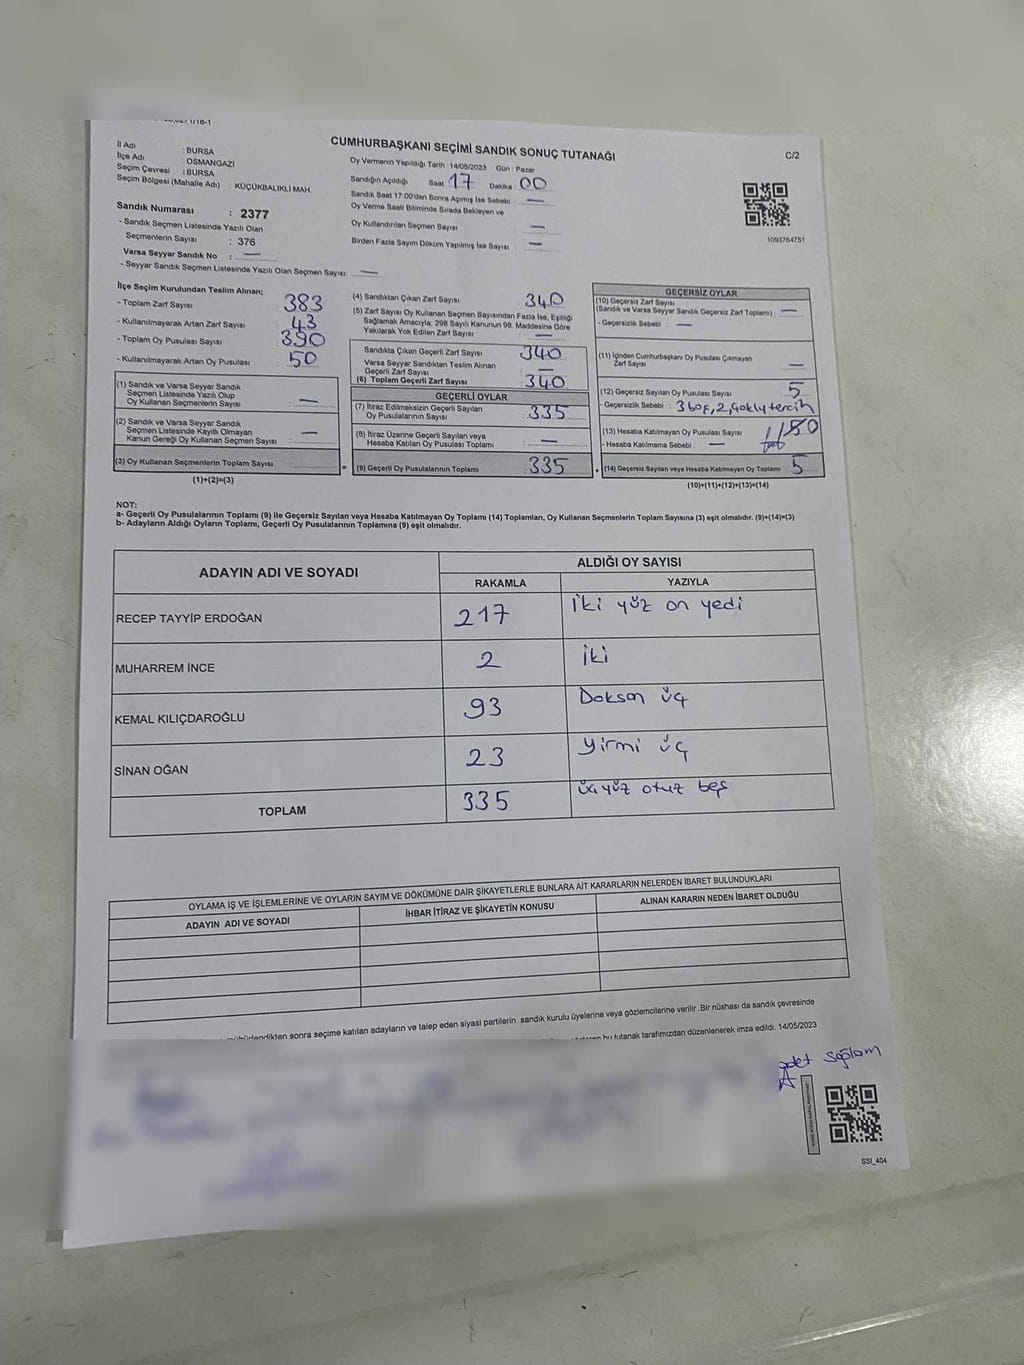 CUMHURBAŞKANI SEÇİMİ SANDIK SONUÇ TUTANAĞI
C/2
İl Adı : BURSA
İlçe Adı : OSMANGAZİ
Seçim Çevresi : BURSA
Seçim Bölgesi (Mahalle Adı) : KÜÇÜKBALIKLI MAH.
Oy Vermenin Yapıldığı Tarih : 14/05/2023 Gün : Pazar
Sandığın Açıldığı Saat 17 Dakika : 00
Sandık Saat 17:00'den Sonra Açımış İse Sebebi : —
Oy Verme Saati Bitiminde Sırada Bekleyen ve
Oy Kullandırılan Seçmen Sayısı —
Birden Fazla Sayım Döküm Yapılmış İse Sayısı —
1093764751
Sandık Numarası : 2377
- Sandık Seçmen Listesinde Yazılı Olan
Seçmenlerin Sayısı : 376
Varsa Seyyar Sandık No : —
- Seyyar Sandık Listesinde Yazılı Olan Seçmen Sayısı: —
İlçe Seçim Kurulundan Teslim Alınan;
- Toplam Zarf Sayısı 383
- Kullanılmayarak Artan Zarf Sayısı 43
- Toplam Oy Pusulası Sayısı 390
- Kullanılmayarak Artan Oy Pusulası 50
(1) Sandık ve Varsa Seyyar Sandık
Seçmen Listesinde Yazılı Olup
Oy Kullanan Seçmenlerin Sayısı : —
(2) Sandık ve Varsa Seyyar Sandık
Seçmen Listesinde Kayıtlı Olmayan
Kanun Gereği Oy Kullanan Seçmen Sayısı : —
(3) Oy Kullanan Seçmenlerin Toplam Sayısı =
(1)+(2)=(3)
(4) Sandıktan Çıkan Zarf Sayısı 340
(5) Zarf Sayısı Oy Kullanan Seçmen Sayısından Fazla İse, Eşitliği
Sağlamak Amacıyla; 298 Sayılı Kanunun 98. Maddesine Göre
Yakılarak Yok Edilen Zarf Sayısı : —
Sandıkta Çıkan Geçerli Zarf Sayısı 340
Varsa Seyyar Sandıktan Teslim Alınan
Geçerli Zarf Sayısı —
(6) Toplam Geçerli Zarf Sayısı 340
GEÇERLİ OYLAR
(7) İtiraz Edilmeksizin Geçerli Sayılan
Oy Pusulalarının Sayısı : 335
(8) İtiraz Üzerine Geçerli Sayılan veya
Hesaba Katılan Oy Pusulası Toplamı : —
(9) Geçerli Oy Pusulalarının Toplamı : 335 +
GEÇERSİZ OYLAR
(10) Geçersiz Zarf Sayısı
(Sandık ve Varsa Seyyar Sandık Geçersiz Zarf Toplamı) : —
- Geçersizlik Sebebi : —
(11) İçinden Cumhurbaşkanı Oy Pusulası Çıkmayan
Zarf Sayısı —
(12) Geçersiz Sayılan Oy Pusulası Sayısı 5
- Geçersizlik Sebebi : 3 boş, 2 çoklu tercih
(13) Hesaba Katılmayan Oy Pusulası Sayısı 50
- Hesaba Katılmama Sebebi : —
(14) Geçersiz Sayılan veya Hesaba Katılmayan Oy Toplamı 5
(10)+(11)+(12)+(13)=(14)
NOT:
a- Geçerli Oy Pusulalarının Toplamı (9) ile Geçersiz Sayılan veya Hesaba Katılmayan Oy Toplamı (14) Toplamları, Oy Kullanan Seçmenlerin Toplam Sayısına (3) eşit olmalıdır. (9)+(14)=(3)
b- Adayların Aldığı Oyların Toplamı, Geçerli Oy Pusulalarının Toplamına (9) eşit olmalıdır.
ADAYIN ADI VE SOYADI
ALDIĞI OY SAYISI
RAKAMLA YAZIYLA
RECEP TAYYİP ERDOĞAN 217 İki yüz on yedi
MUHARREM İNCE 2 iki
KEMAL KILIÇDAROĞLU 93 Doksan üç
SİNAN OĞAN 23 yirmi üç
TOPLAM 335 üç yüz otuz beş
OYLAMA İŞ VE İŞLEMLERİNE VE OYLARIN SAYIM VE DÖKÜMÜNE DAİR ŞİKAYETLERLE BUNLARA AİT KARARLARIN NELERDEN İBARET BULUNDUKLARI
ADAYIN ADI VE SOYADI İHBAR İTİRAZ VE ŞİKAYETİN KONUSU ALINAN KARARIN NEDEN İBARET OLDUĞU
sonra seçime katılan adayların ve talep eden siyasi partilerin sandık kurulu üyelerine veya gözlemcilerine verilir .Bir nüshası da sandık çevresinde
bu tutanak tarafımızdan düzenlenerek imza edildi. 14/05/2023
adet sağlam
SSI_404